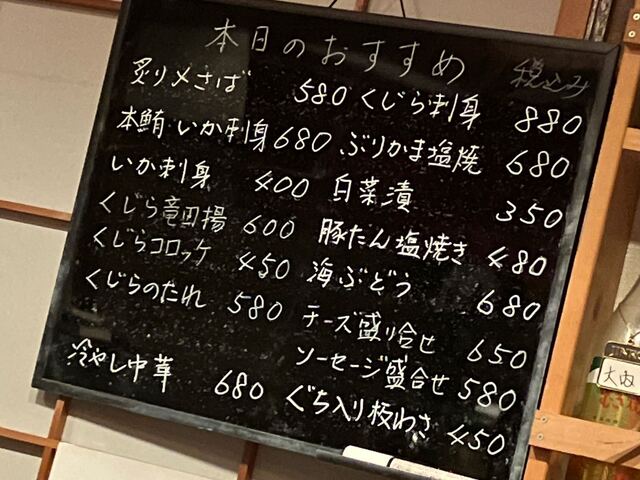 本日のおすすめ
税込み
炙り〆さば 580
本鮪いか刺身 680
いか刺身 400
くじら竜田揚 600
くじらコロッケ 450
くじらのたれ 580
冷やし中華 680
くじら刺身 880
ぶりかま塩焼 680
白菜漬 350
豚たん塩焼き 480
海ぶどう 680
チーズ盛り合せ 650
ソーセージ盛合せ 580
ぐち入り板わさ 450